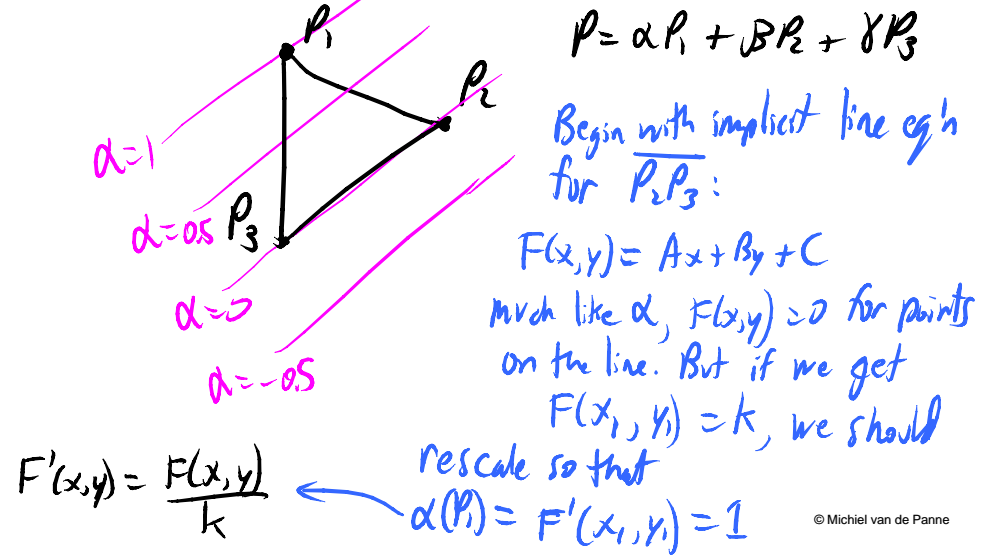 P₁
P₂
P₃
α=1
α=0.5
α=0
α=-0.5
P = αP₁ + βP₂ + γP₃
Begin with implicit line eq'n
for P̅₂̅P̅₃̅ :
F(x,y) = Ax + By + C
much like α, F(x,y)=0 for points
on the line. But if we get
F(x₁, y₁) = k, we should
rescale so that
α(P₁) = F'(x₁, y₁) = 1
F'(x,y) = F(x,y)
k
© Michiel van de Panne